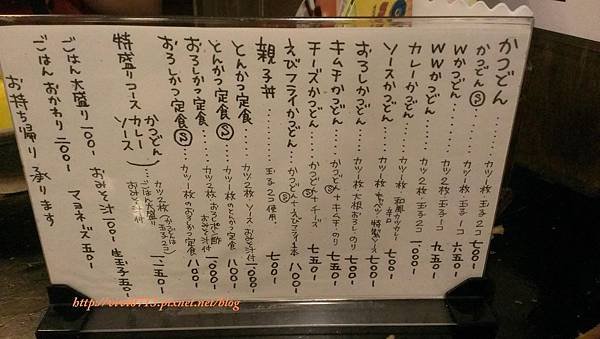 かつどん……カツ一枚 玉子2コ 七〇〇-
かつどんⓈ……カツ一枚 玉子一コ 六五〇-
Wかつどん……カツ2枚 玉子一コ 九五〇-
WWかつどん……カツ2枚 玉子2コ 一〇〇〇-
カレーかつどん……カツ一枚 和風カツカレー 辛口 七〇〇-
ソースかつどん……カツ一枚 キャベツ・特製ソース 七〇〇-
おろしかつどん……カツ一枚 大根おろし・のり 七〇〇-
キムチかつどん……かつどんⓈ+キムチ・のり 七五〇-
チーズかつどん……かつどんⓈ+チーズ 七五〇-
えびフライかつどん……かつどんⓈ+えびフライ一本 八〇〇-
親子丼……玉子2コ使用。 七〇〇-
とんかつ定食……カツ2枚 ソース おみそ汁付 一〇〇〇-
とんかつ定食Ⓢ……カツ一枚のとんかつ定食 八〇〇-
おろしかつ定食……カツ2枚 おろしポン酢 おみそ汁付 一〇〇〇-
おろしかつ定食Ⓢ……カツ一枚のおろしかつ定食 八〇〇-
特盛りコース かつどん カレー ソース)……カツ2枚(かつどんは玉子2コ) ごはん大盛り おみそ汁付 一二五〇-
ごはん大盛り 一〇〇- おみそ汁 一〇〇- 生玉子 五〇-
ごはんおかわり 二〇〇- マヨネーズ 五〇-
お持ち帰り 承ります